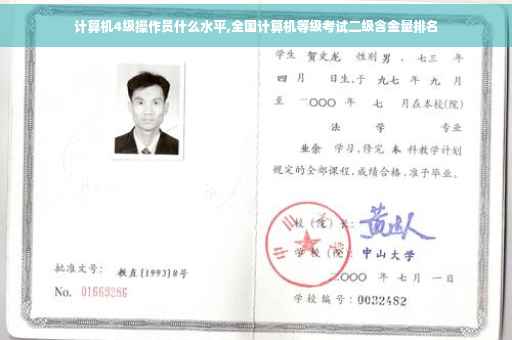 计算机4级操作员什么水平,全国计算机等级考试二级含金量排名
学生 贺文龙 性别 男 、七三 年
四 月 日生,于 九七 年 九 月
至 二〇〇〇 年 七 月在本校(院)
法 学 专业
业余 学习,修完 本 科教学计划
规定的全部课程,成绩合格,准予毕业。
校(院)长:
学校(院): 中山大学
二〇〇〇 年 七 月 一 日
学校编号: 0032482
批准文号: 教直(1993)8号
No. 01669286